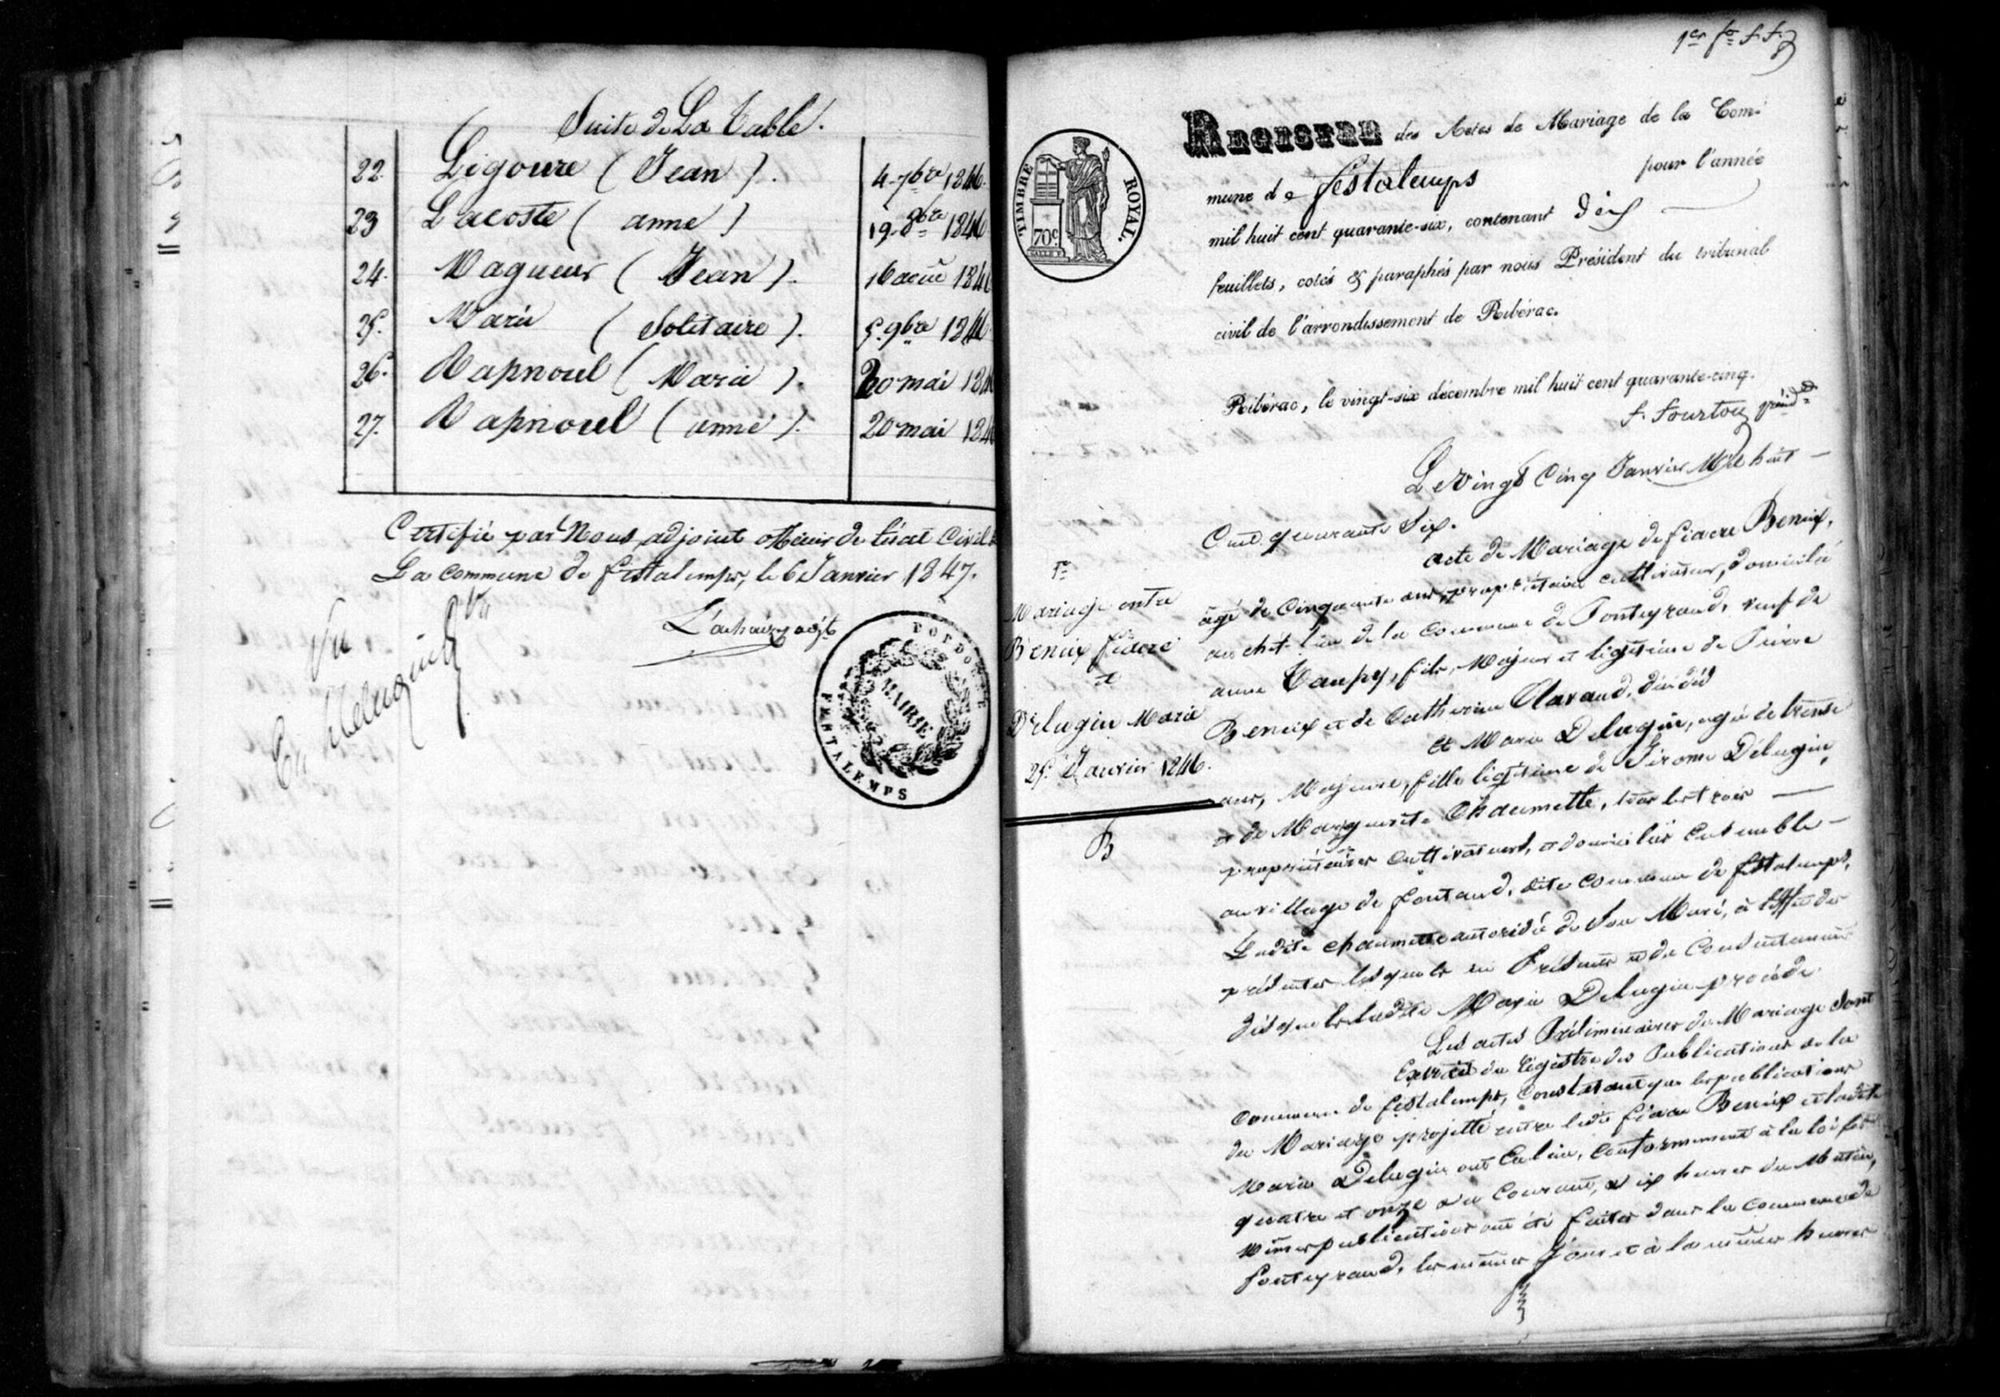 Suite de La Table.
22. Ligoure (Jean). 4. 7bre 1846.
23 Lacoste (anne) 19. 8bre 1846
24. Magueur (Jean). 16 aout 1846
25. Marie (Solitaire). 5. 9bre 1846
26. Rapnouil (Marie). 20 mai 184
27. Rapnouil (anne). 20 mai 184
Certifié par Nous, adjoint officier de l'état Civil de
La commune de festalemps, le 6 Janvier 1847.
Vu
POP DORDOGNE
MAIRIE
FESTALEMPS
1er fo f. f.
TIMBRE ROYAL.
70c
REGISTRE des Actes de Mariage de la Com-
mune de festalemps pour l'année
mil huit cent quarante-six, contenant dix
feuillets, cotés & paraphés par nous Président du tribunal
civil de l'arrondissement de Ribérac.
Ribérac, le vingt-six décembre mil huit cent quarante-cinq.
f. fourtou
Le Vingt Cinq Janvier Mil huit
Cent quarante Six.
1er
Mariage entre
Beneix fiacre
et
Delugin Marie
25. Janvier 1846.
B
acte de Mariage de fiacre Beneix,
agé de Cinquante ans, propriétaire cultivateur, domicilié
au chef lieu de la Commune de Ponteyraud, veuf de
anne Taupy, fils Majeur et légitime de Pierre
Beneix et de Catherine Clavaud, décédés
et Marie Delugin, agée de trente
ans, Majeure, fille légitime de Jérome Delugin,
et de Marguerite Chaumette, tous les trois
propriétaires Cultivateurs, et domiciliés Ensemble
au village de fontaud, dite commune de festalemps,
Ladite Chaumette autorisée de Son Mari, à l'effet des
présentes lesquels en Présence et du Consentement
desquels ladite Marie Delugin procède.
Les actes Préliminaires du Mariage Sont
Extrait du régistre des Publications de la
Commune de festalemps, Constatant que les publications
du Mariage projetté entre ledit fiacre Beneix et ladite
Marie Delugin ont Eu lieu, Conformément à la loi les
quatre et onze du Courant, dix heures du Matin,
Mêmes publications ont été faites dans la commune de
Ponteyraud, les mêmes Jours et à la même heure